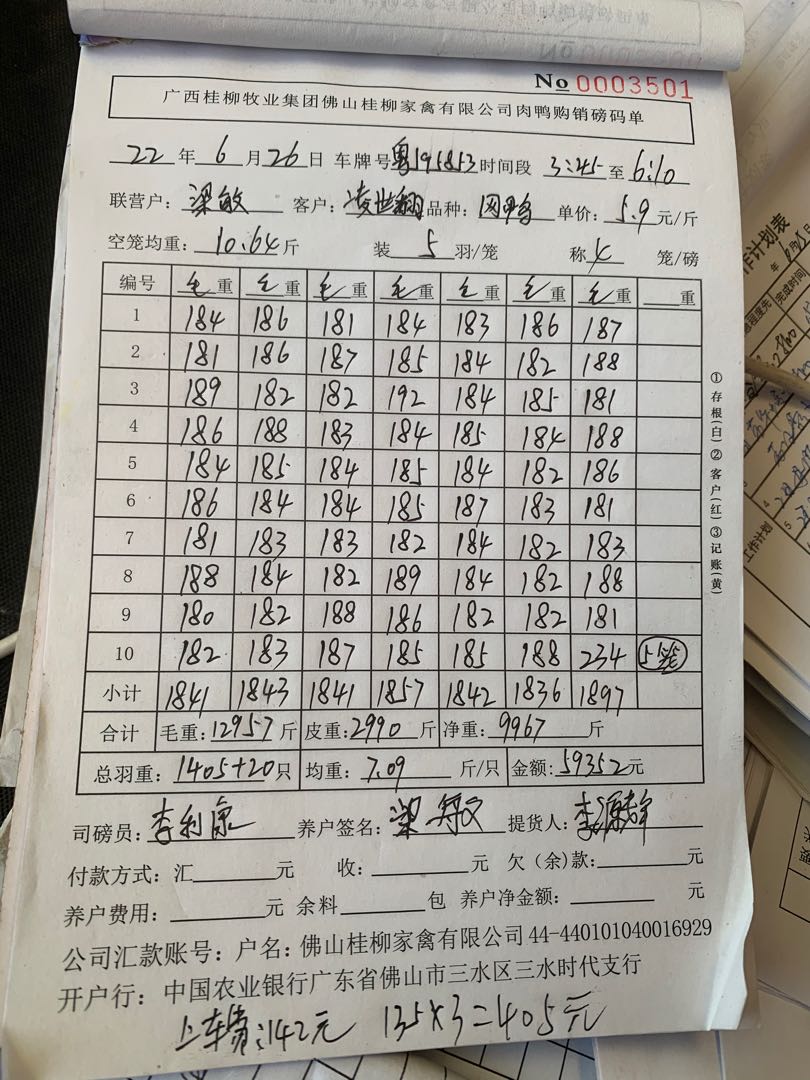 No 0003501
广西桂柳牧业集团佛山桂柳家禽有限公司肉鸭购销磅码单
22年6月26日 车牌号粤195853时间段 3:45至6:10
联营户：梁敏 客户：凌世翻品种：肉鸭 单价：5.9元/斤
空笼均重：10.64斤 装5羽/笼 称4笼/磅
编号 毛重 毛重 毛重 毛重 毛重 毛重 毛重 重
1 184 186 181 184 183 186 187
2 181 186 187 185 184 182 188
3 189 182 182 192 184 185 181
4 186 188 183 184 185 184 188
5 184 185 184 185 184 182 186
6 186 184 184 185 187 183 181
7 181 183 183 182 184 182 183
8 188 184 182 189 184 182 188
9 180 182 188 186 182 182 181
10 182 183 187 185 185 188 234 5笼
小计 1841 1843 1841 1857 1842 1836 1897
合计 毛重：12957斤 皮重：2990斤 净重：9967斤
总羽重：1405+20只 均重：7.09斤/只 金额：59352元
司磅员：李利康 养户签名：梁 提货人：李源
付款方式：汇 元 收： 元 欠（余）款： 元
养户费用： 元 余料 包 养户净金额： 元
公司汇款账号：户名：佛山桂柳家禽有限公司 44-440101040016929
开户行：中国农业银行广东省佛山市三水区三水时代支行
上车费：142元 135×3=405元
①存根(白)②客户(红)③记账(黄)
工作计划表
完成时间
工作计划